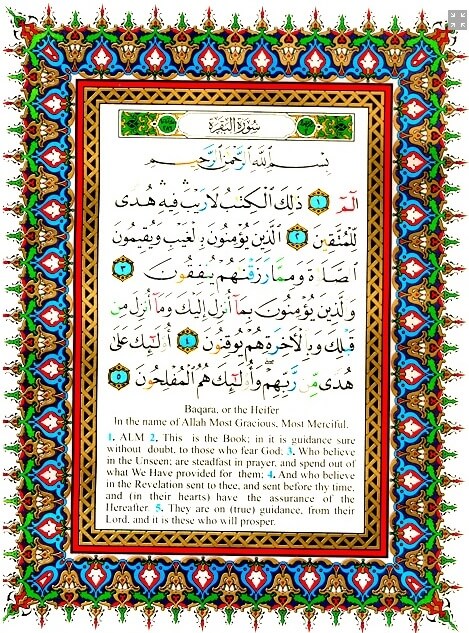 سُورَةُ البَقَرَةِ
بِسْمِ اللَّهِ الرَّحْمَٰنِ الرَّحِيمِ
الٓمٓ ١ ذَٰلِكَ الْكِتَٰبُ لَا رَيْبَ ۛ فِيهِ ۛ هُدًى
لِّلْمُتَّقِينَ ٢ الَّذِينَ يُؤْمِنُونَ بِالْغَيْبِ وَيُقِيمُونَ
الصَّلَوٰةَ وَمِمَّا رَزَقْنَٰهُمْ يُنفِقُونَ ٣
وَالَّذِينَ يُؤْمِنُونَ بِمَآ أُنزِلَ إِلَيْكَ وَمَآ أُنزِلَ مِن
قَبْلِكَ وَبِالْآخِرَةِ هُمْ يُوقِنُونَ ٤ أُو۟لَٰٓئِكَ عَلَىٰ
هُدًى مِّن رَّبِّهِمْ ۖ وَأُو۟لَٰٓئِكَ هُمُ الْمُفْلِحُونَ ٥
Baqara, or the Heifer
In the name of Allah Most Gracious, Most Merciful.
1. ALM 2. This is the Book; in it is guidance sure
without doubt, to those who fear God; 3. Who believe
in the Unseen; are steadfast in prayer, and spend out of
what We Have provided for them; 4. And who believe
in the Revelation sent to thee, and sent before thy time,
and (in their hearts) have the assurance of the
Hereafter 5. They are on (true) guidance, from their
Lord, and it is these who will prosper.